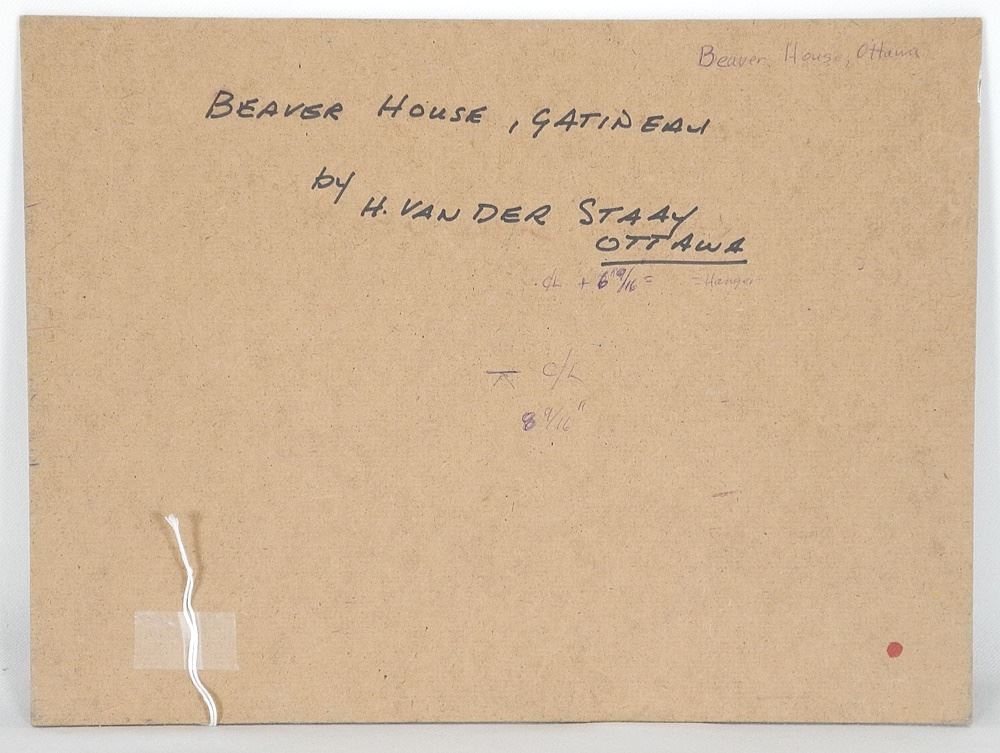 Beaver House, Ottawa
BEAVER HOUSE, GATINEAU
by
H. VAN DER STAAY
OTTAWA
C/L + 6 = = Hanger
C/L
8 9/16"